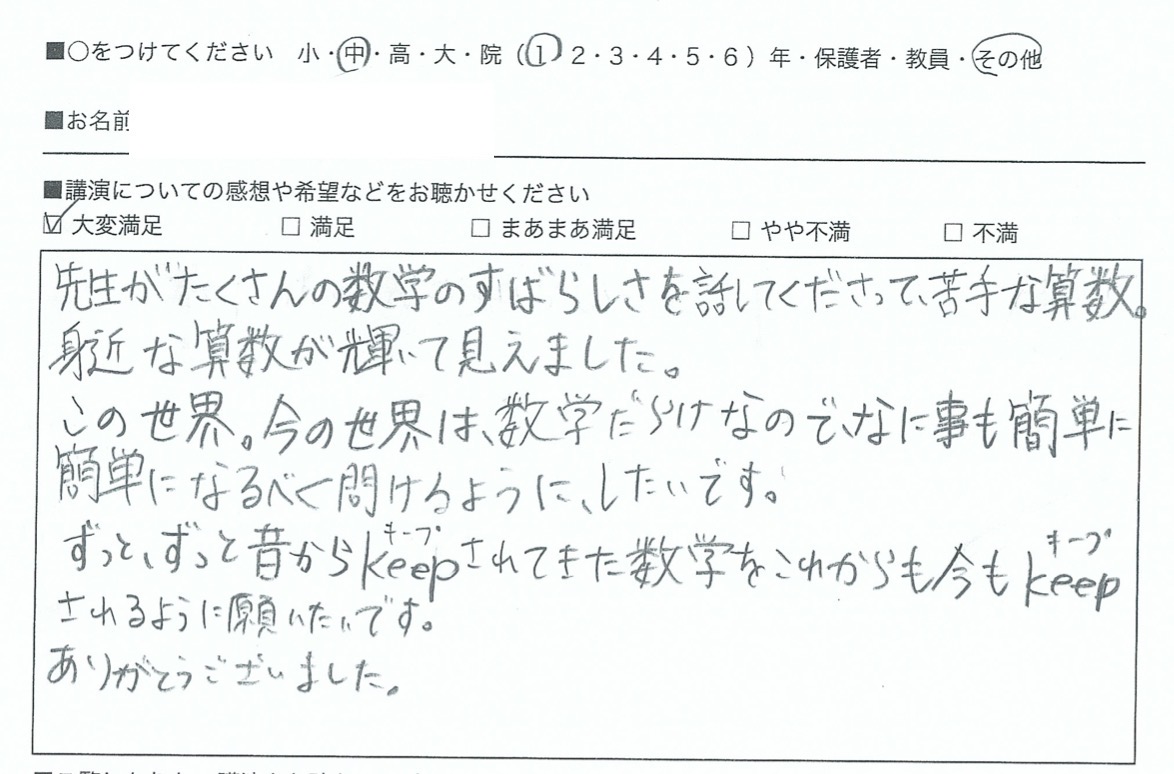 ■○をつけてください 小・中・高・大・院(1 2・3・4・5・6)年・保護者・教員・その他
■お名前
■講演についての感想や希望などをお聴かせください
☑ 大変満足 □ 満足 □ まあまあ満足 □ やや不満 □ 不満
先生がたくさんの数学のすばらしさを話してくださって、苦手な算数。
身近な算数が輝いて見えました。
この世界。今の世界は、数学だらけなので、なに事も簡単に
簡単になるべく問けるように、したいです。
ずっと、ずっと昔からkeepされてきた数学をこれからも今もkeep
キープ キープ
されるように願いたいです。
ありがとうございました。